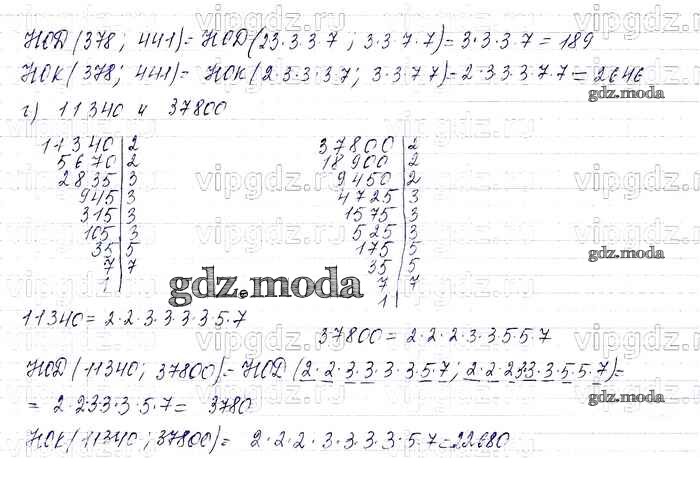 НОД(378; 441)= НОД(23·3·3·7; 3·3·7·7)= 3·3·3·7= 189
НОК(378; 441)= НОК(2·3·3·3·7; 3·3·7·7)= 2·3·3·3·7·7= 2646
gdz.moda
г) 11340 и 37800
11340|2
5670|2
2835|3
945|3
315|3
105|3
35|5
7|7
1|
37800|2
18900|2
9450|2
4725|3
1575|3
525|3
175|5
35|5
7|7
1|
gdz.moda
gdz.moda
11340= 2·2·3·3·3·3·5·7
37800= 2·2·2·3·3·5·5·7
НОД(11340; 37800)= НОД(2·2·3·3·3·3·5·7; 2·2·2·33·3·5·5·7)=
= 2·2·33·3·5·7= 3780
gdz.moda
НОК(11340; 37800)= 2·2·2·3·3·3·3·5·7=22680
vipgdz.ru